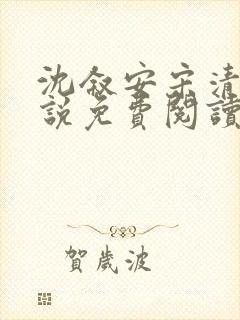 沈敘安宋清
說免費閱讀
賀歲波